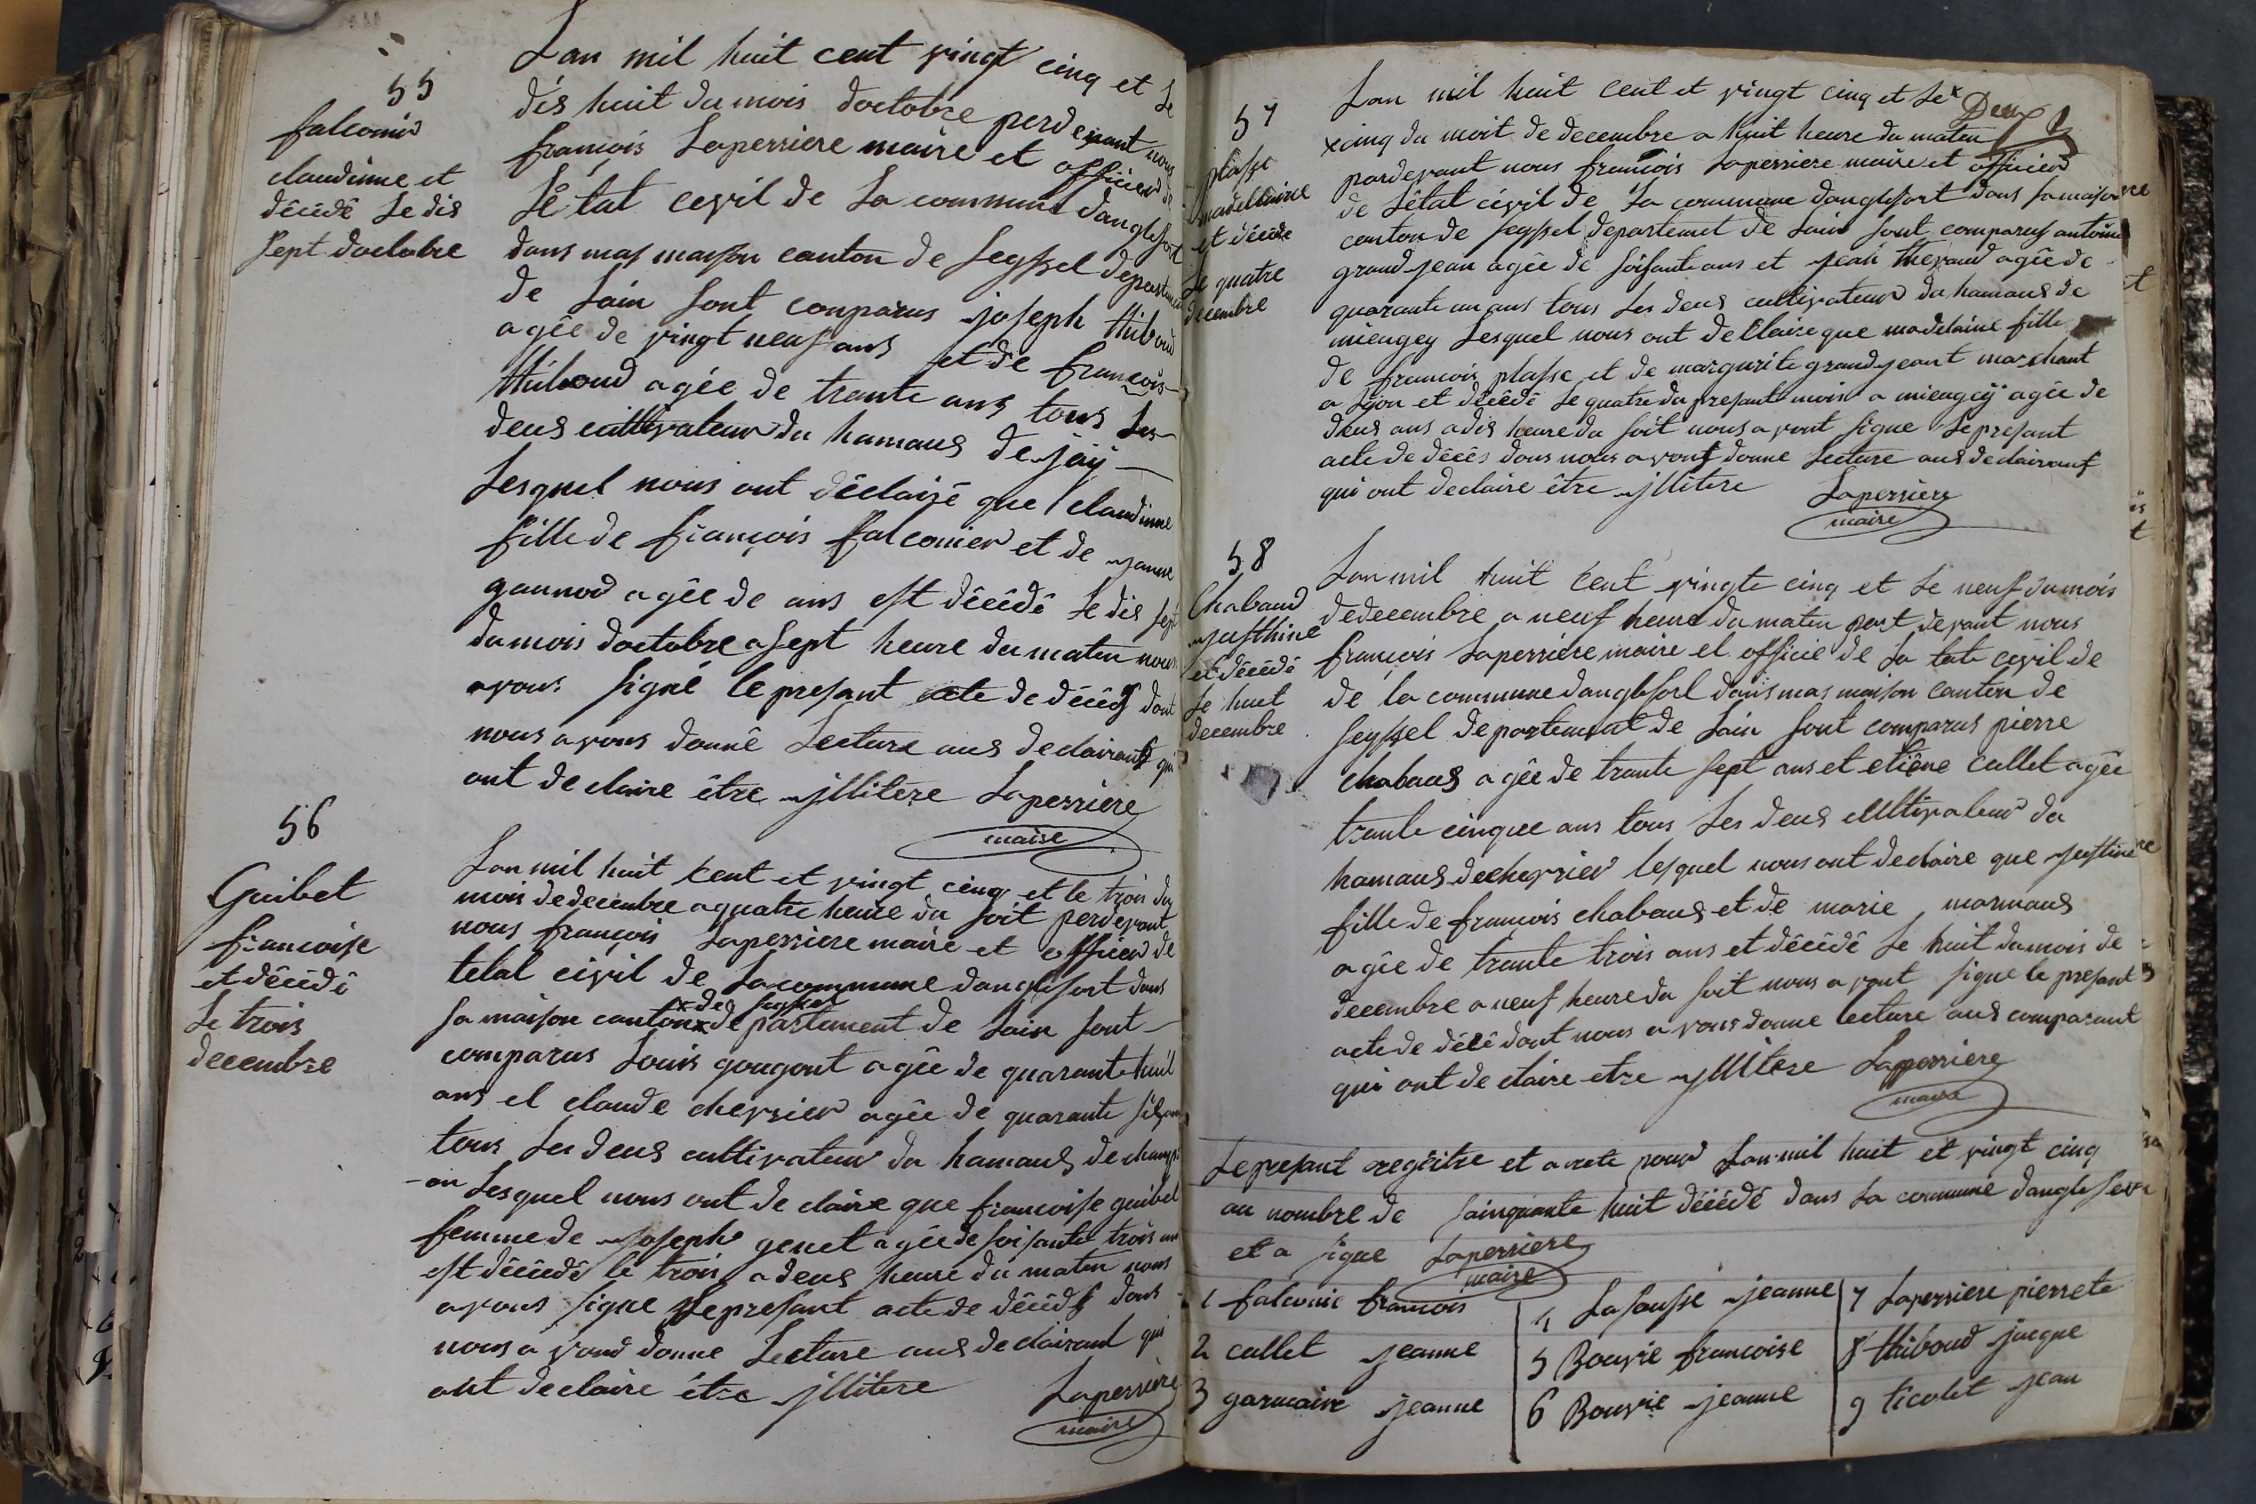 55
falconier
claudinne et
décédé le dis
sept doctobre
Lan mil huit cent vingt cinq et le
dés huit du mois doctobre perdevant nous
françois Laperriere maire et officier de
Létat cevil de La commune danglefort
dans mas maison canton de Seyssel departement
de Lain sont comparus joseph thiboud
agée de vingt neuf ans et de francois
thiboud agée de trante ans tous Les
deus cultivateur du hamaus de jay
Lesquel nous ont déclairé que claudinne
fille de françois falconier et de janne
gannod agée de ans est décédé le dis sept
du mois doctobre a sept heure du matin nous
avons signé le presant acte de décés dont
nous avons donné Lecture aus declairants qui
ont declaire étre jllitere Laperriere
maire
56
Guibet
francoise
et décédé
Le trois
decembre
Lan mil huit cent et vingt cinq et le trois du
mois de decembre a quatre heure du soit perdevant
nous françois Laperriere maire et officier de
letat civil de La commune danglefort dans
sa maison canton x de seyssel x departement de Lain sont
comparus Louis gougout agée de quarante huit
ans et claude chevrier agée de quarante sis ans
tous Les deus cultivateur du hamaus de champi
-on Lesquel nous ont declaire que francoise guibet
femme de joseph genet agée de soisante trois ans
est décédé le trois a deus heure du matin nous
avons signe Le presant acte de décéds dont
nous a vond donne Lecture aus declairant qui
ont declaire étre jllitere Laperriere
maire
57
plasse
madellaine
et décéde
Le quatre
decembre
Lan mil huit cent et vingt cinq et Le x Deux
x cinq du moit de decembre a huit heure du matin
pardevant nous francois Laperriere maire et officier
de Létat cévil de La commune danglefort dans sa maison
canton de seyssel departemet de Lain sont comparus antoine
grand jean agée de soisante ans et jean thevaud agée de
quarante un ans tous Les deus cultivateur du hamaus de
miengey Lesquel nous ont declaire que madelaine fille
de francois plasse et de margurite grand jeant marchant
a Lyon et décédé Le quatre du presant mois a miengeÿ agée de
deus ans a dis heure du soit nous avont signe Le presant
acte de décés dons nous avont donne Lecture aus declairant
qui ont declaire étre jllitere Laperriere
maire
58
Chabaud
justhine
et décédé
Le huit
decembre
Lan mil huit cent vingte cinq et Le neuf du mois
de decembre a neuf heure du matin part devant nous
françois Laperriere maire et officie de La tate cevil de
de la commune danglefort dans mas maison canton de
Seyssel departement de Lain sont comparus pierre
chabaus agée de trante sept ans et etiene callet agée
trante cinque ans tous Les deus cultivateur du
hamaus de chevrier lesquel nous ont declaire que justine
fille de francois chabaus et de marie marmaus
agée de trante trois ans et décédé Le huit du mois de
decembre a neuf heure du soit nous avont signe le presant
acte de décé dont nous avons donne lecture aus comparant
qui ont declaire etre jllitere Laperriere
maire
Le presant regéitre et a rete pour Lan mil huit et vingt cinq
au nombre de sainquante huit décédé dans La commune danglefort
et a signe Laperriere
maire
1 falconie francois
2 callet jeanne
3 garmain jeanne
4 Lasousse jeanne
5 Bouvie francoise
6 Bouvie jeanne
7 Laperriere pierrete
8 thiboud jacque
9 ticolet jean